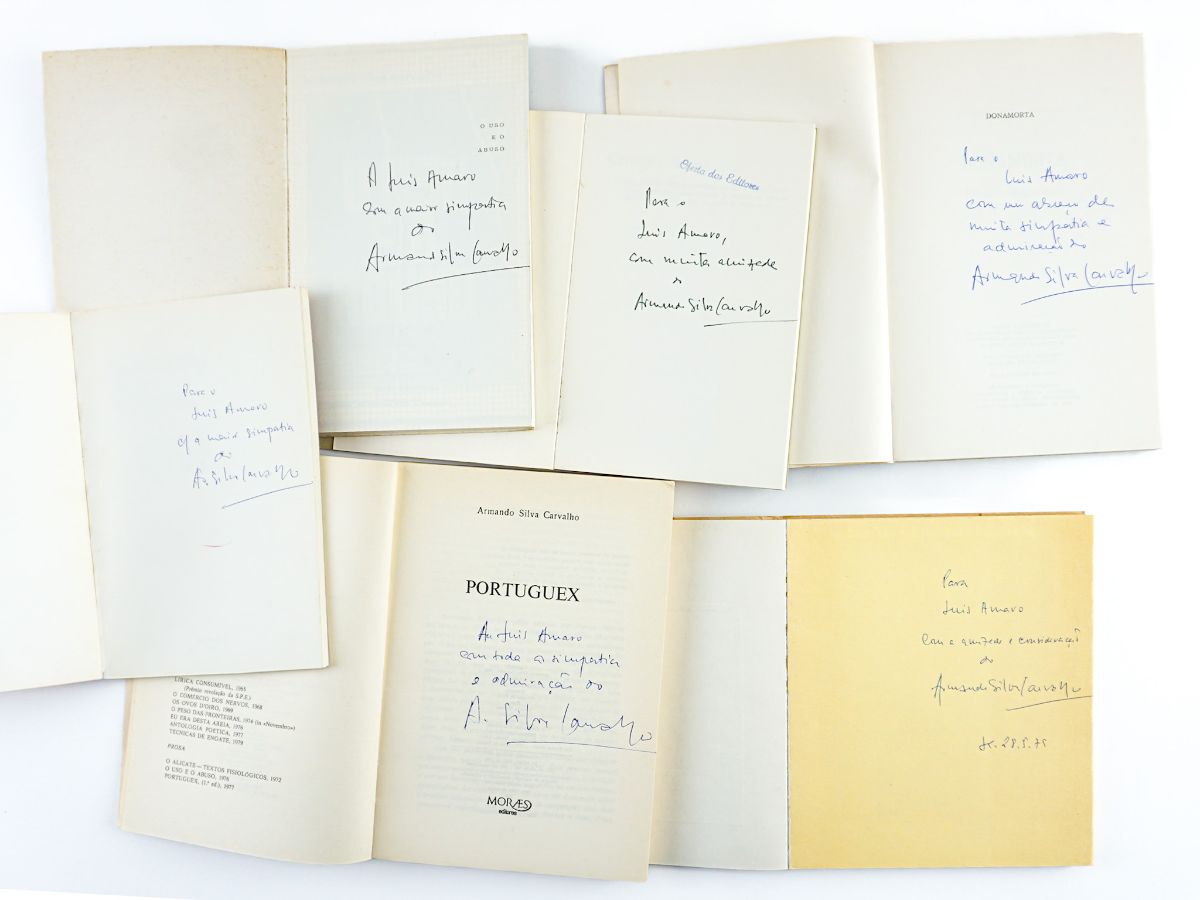 O USO
E O
ABUSO
A Luis Amaro
com a maior simpatia
do
Armando Silva Carvalho
Oferta dos Editores
Para o
Luis Amaro,
com muita amizade
do
Armando Silva Carvalho
DONAMORTA
Para o
Luis Amaro
com um abraço de
muita simpatia e
admiração do
Armando Silva Carvalho
Para o
Luis Amaro
c/ a maior simpatia
do
A. Silva Carvalho
LÍRICA CONSUMÍVEL, 1965
(Prémio revelação da S.P.E.)
O COMÉRCIO DOS NERVOS, 1968
OS OVOS D'OIRO, 1969
O PESO DAS FRONTEIRAS, 1974 (in «Novembro»)
EU ERA DESTA AREIA, 1976
ANTOLOGIA POÉTICA, 1977
TÉCNICAS DE ENGATE, 1979
PROSA
O ALICATE — TEXTOS FISIOLÓGICOS, 1972
O USO E O ABUSO, 1976
PORTUGUEX, (1.ª ed.), 1977
Armando Silva Carvalho
PORTUGUEX
Ao Luis Amaro
com toda a simpatia
e admiração do
A. Silva Carvalho
MORAES
editores
Para
Luis Amaro
com a amizade e consideração
do
Armando Silva Carvalho
28.5.75